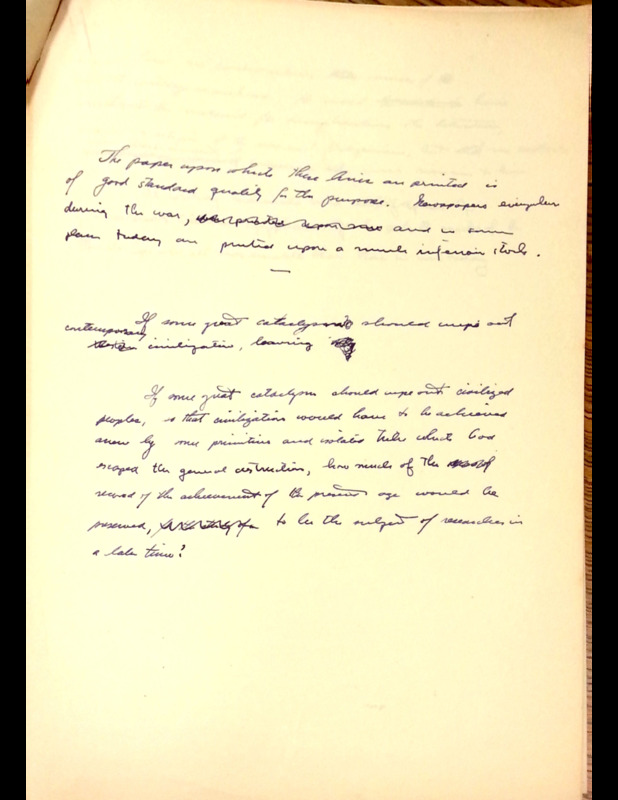 The paper upon which these lines are printed is
of good standard quality for the purpose. Newspapers everywhere
during the war, and in some
places today are printed upon a much inferior stock.
—
If some great cataclysm should wipe out
contemporary civilization, leaving
If some great cataclysm should wipe out civilized
peoples, so that civilization would have to be achieved
anew by some primitive and isolated tribe which had
escaped the general destruction, how much of the
record of the achievement of the present age would be
preserved, to be the subject of researches in
a later time?